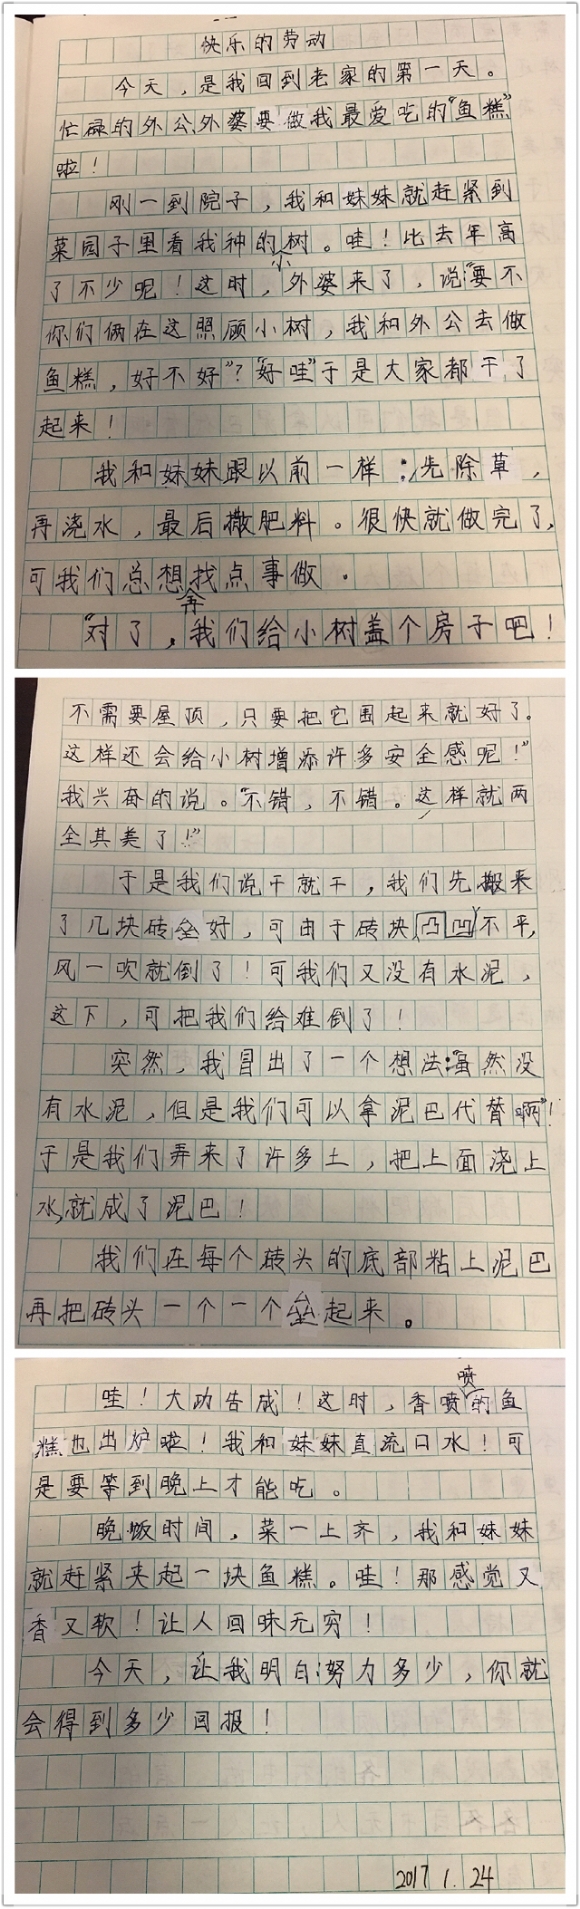 快乐的劳动
今天，是我回到老家的第一天。
忙碌的外公、外婆要做我最爱吃的“鱼糕”
啦！
刚一到院子，我和妹妹就赶紧到
菜园子里看我种的小树。哇！比去年高
了不少呢！这时，外婆来了，说：“要不
你们俩在这照顾小树，我和外公去做
鱼糕，好不好”？“好哇”于是大家都干了
起来！
我和妹妹跟以前一样：先除草，
再浇水，最后撒肥料。很快就做完了，
可我们总想再找点事做。
“对了，我们给小树盖个房子吧！
不需要屋顶，只要把它围起来就好了。
这样还会给小树增添许多安全感呢！”
我兴奋的说。“不错，不错。这样就两
全其美了！”
于是我们说干就干，我们先搬来
了几块砖垒好，可由于砖块凸凹不平，
风一吹就倒了！可我们又没有水泥，
这下，可把我们给难倒了！
突然，我冒出了一个想法：“虽然没
有水泥，但是我们可以拿泥巴代替啊”！
于是我们弄来了许多土，把上面浇上
水，就成了泥巴！
我们在每个砖头的底部粘上泥巴
再把砖头一个一个垒起来。
哇！大功告成！这时，香喷喷的鱼
糕也出炉啦！我和妹妹直流口水！可
是要等到晚上才能吃。
晚饭时间，菜一上齐，我和妹妹
就赶紧夹起一块鱼糕。哇！那感觉又
香又软！让人回味无穷！
今天，让我明白：努力多少，你就
会得到多少回报！
2017 1. 24